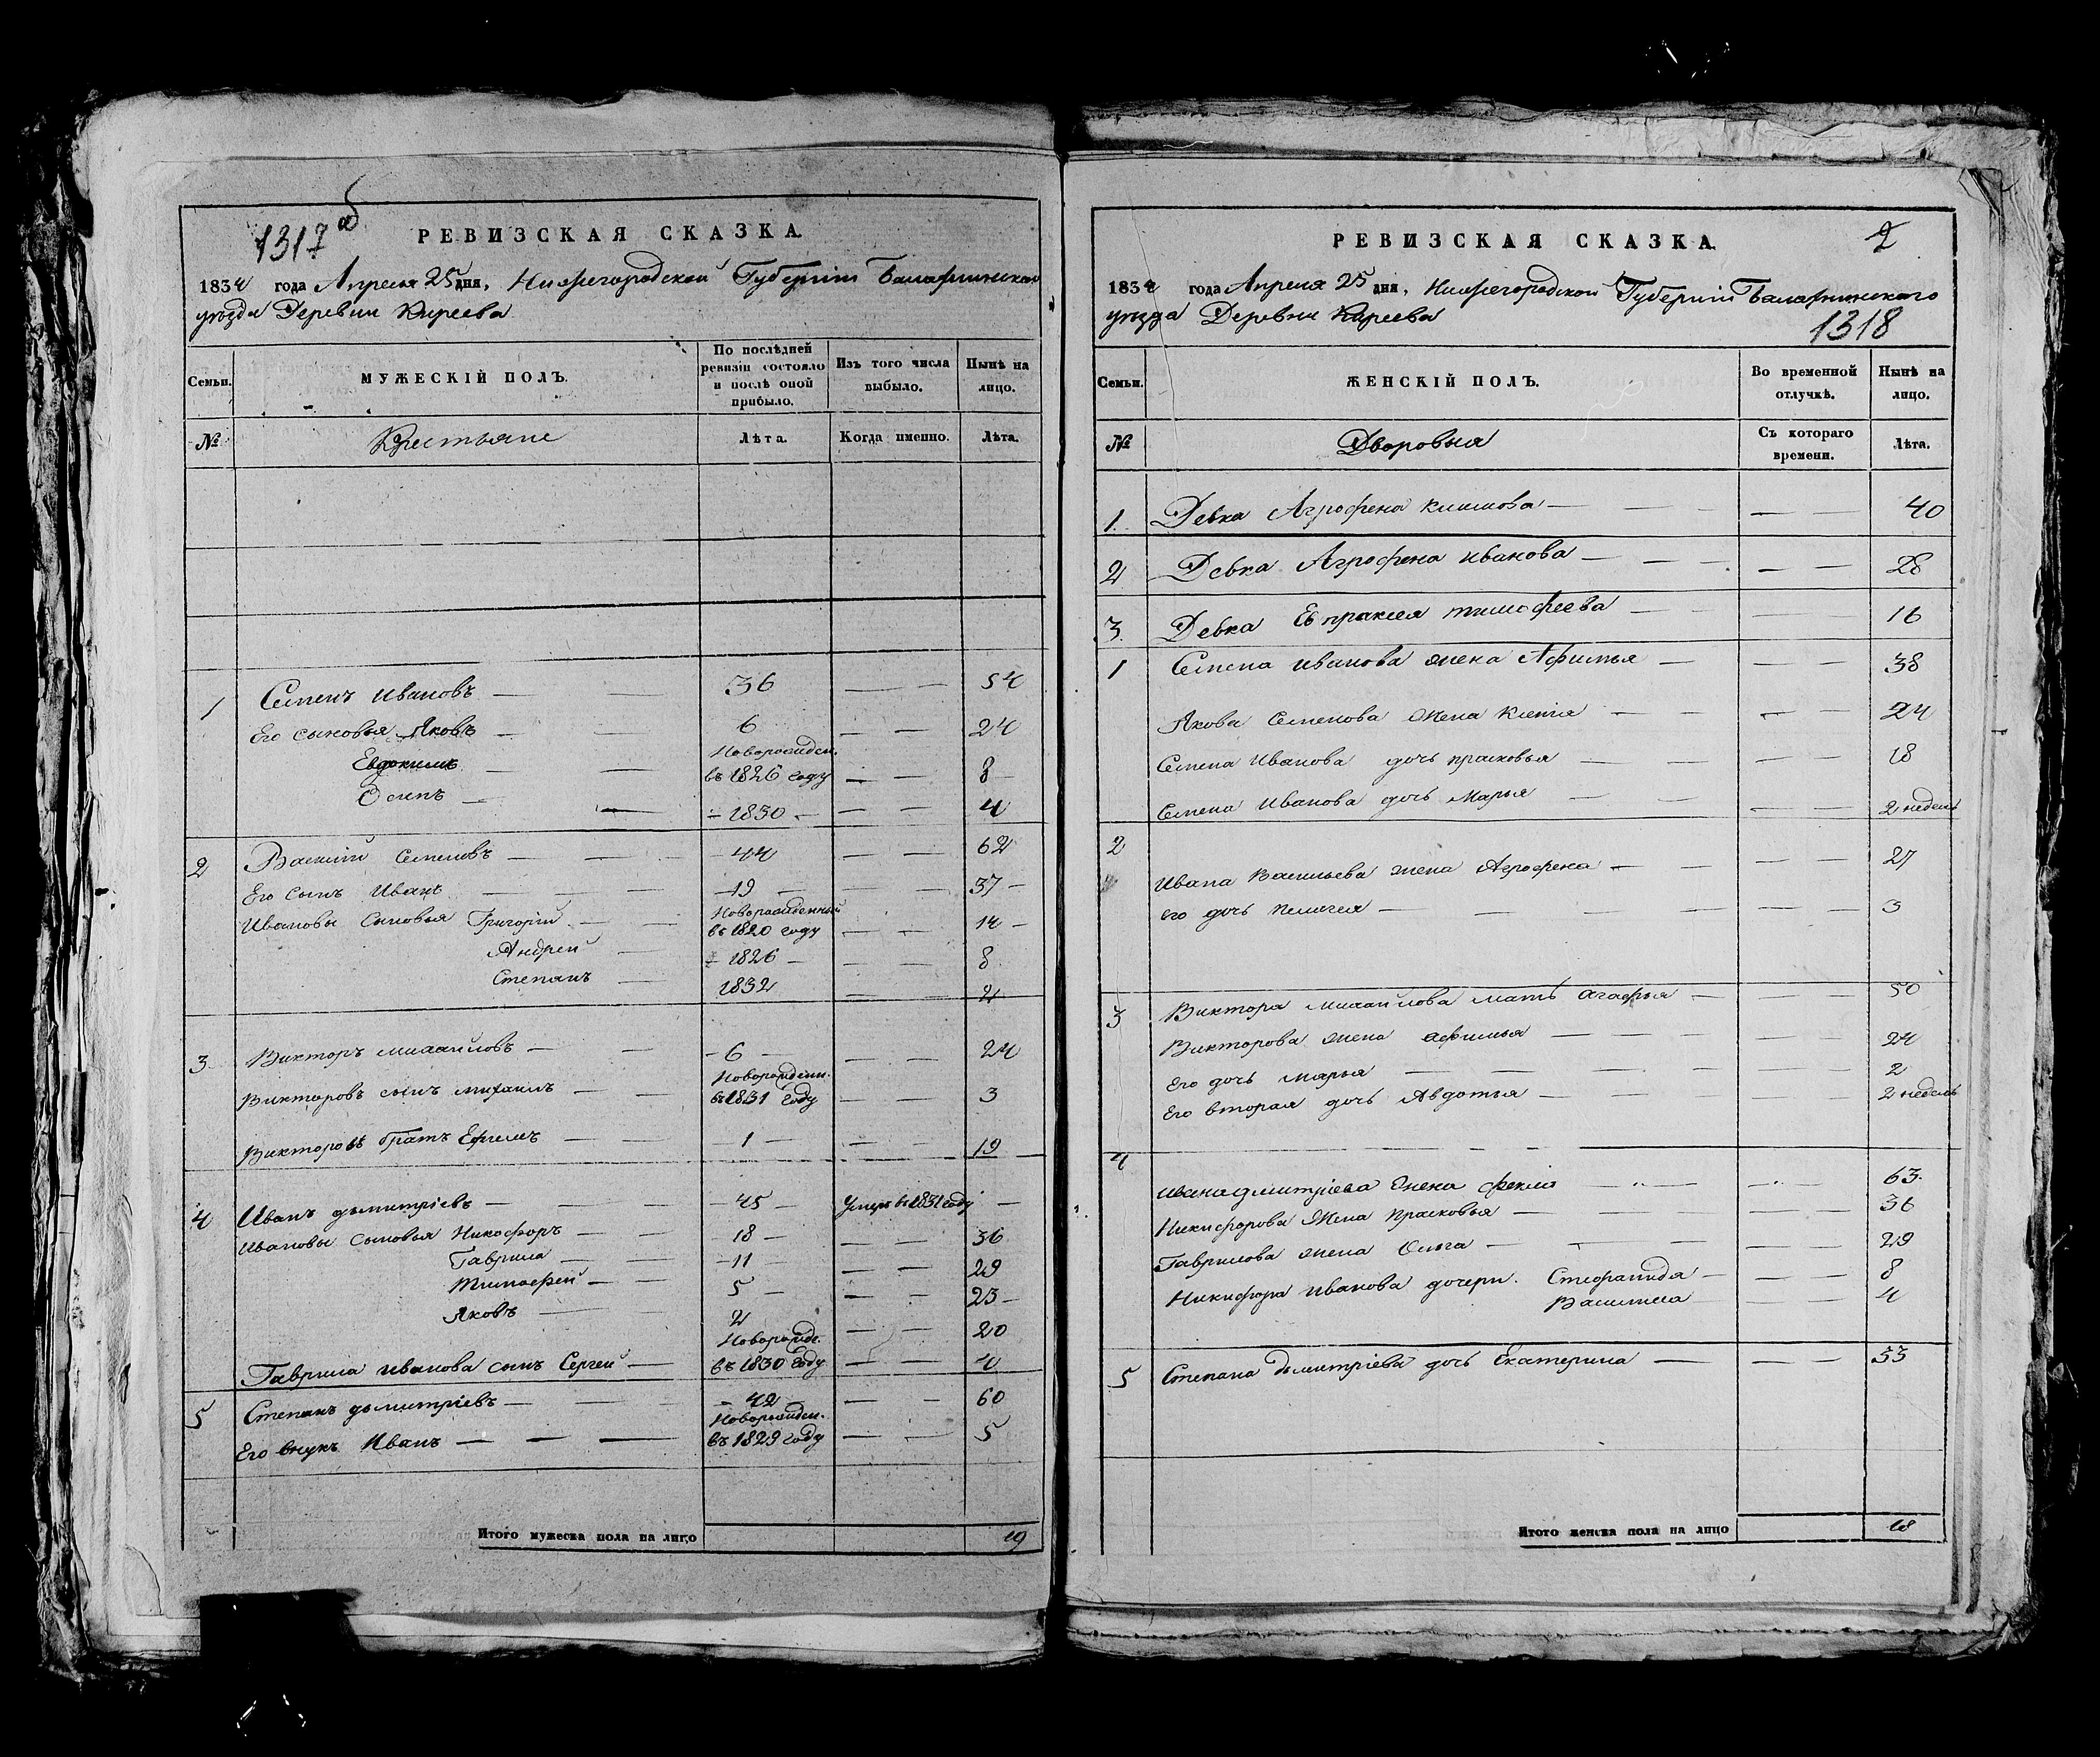 1317 об
РЕВИЗСКАЯ СКАЗКА.
1834 года Апреля 25 дня, Нижегородской Губернiи Балахнинскаго
уезда Деревни Киреева
Семьи.
МУЖЕСКІЙ ПОЛЪ.
По послѣдней ревизіи состояло и послѣ оной прибыло.
Изъ того числа выбыло.
Нынѣ на лицо.
№
Крестьяне
Лѣта.
Когда именно.
Лѣта.
1 Семенъ Ивановъ — — 36 — — 54
Его сыновья Яковъ — — 6 — — 24
Евдокимъ — — Новорожден. въ 1826 году — — 8
Осипъ — — 1830 — — 4
2 Василий Семеновъ — — 44 — — 62
Его сынъ Иванъ — — 19 — — 37
Ивановы сыновья Григорiй — — Новорожденный въ 1820 году — — 14
Андрей — 1826 — — 8
Степанъ — 1832 — — 2
3 Викторъ Михайловъ — — 6 — — 24
Викторовъ сынъ Михаилъ — — Новорожден. въ 1831 году — — 3
Викторовъ братъ Ефимъ — — 1 — — 19
4 Иванъ дьмитрiевъ — — 45 — Умеръ въ 1831 году —
Ивановы сыновья Никофоръ — — 18 — — 36
Гаврила — — 11 — — 29
Тимофей — — 5 — — 23
Яковъ — — 2 — — 20
Гаврила Иванова сынъ Сергей — Новорожде. въ 1830 году — — 4
5 Степанъ дьмитрiевъ — — 42 — — 60
Его внукъ Иванъ — — Новорожден. въ 1829 году — — 5
Итого мужеска пола на лицо 19
2
РЕВИЗСКАЯ СКАЗКА.
1834 года Апреля 25 дня, Нижегородской Губернiи Балахнинскаго
уезда Деревни Киреева
1318
Семьи.
ЖЕНСКІЙ ПОЛЪ.
Во временной отлучкѣ.
Нынѣ на лицо.
№
Дворовыя
Съ котораго времени.
Лѣта.
1. Девка Агрофена — — — 40
2 Девка Агрофена Иванова — — — 28
3. Девка Евпраксея тимофеева — — — 16
1 Семена Иванова жена Афимья — — — 38
Якова Семенова жена — — — 24
Семена Иванова дочь прасковья — — — 18
Семена Иванова дочь Марья — — — 2 недель
2
Ивана Васильева жена Агрофена — — — 27
его дочь Пелагея — — — 3
3 Виктора Михайлова мать агафья — — — 50
Викторова жена афимья — — — 24
Его дочь Марья — — — 2
Его вторая дочь Авдотья — — — 2 недель
4
Ивана дмитрiева жена фекла — — — 63.
Никифорова жена прасковья — — — 36
Гаврилова жена Ольга — — — 29
Никифора Иванова дочери. Стефанида — — — 8
Василиса — — 4
5 Степана дьмитрiева дочь Екатерина — — — 33
Итого женска пола на лицо 18